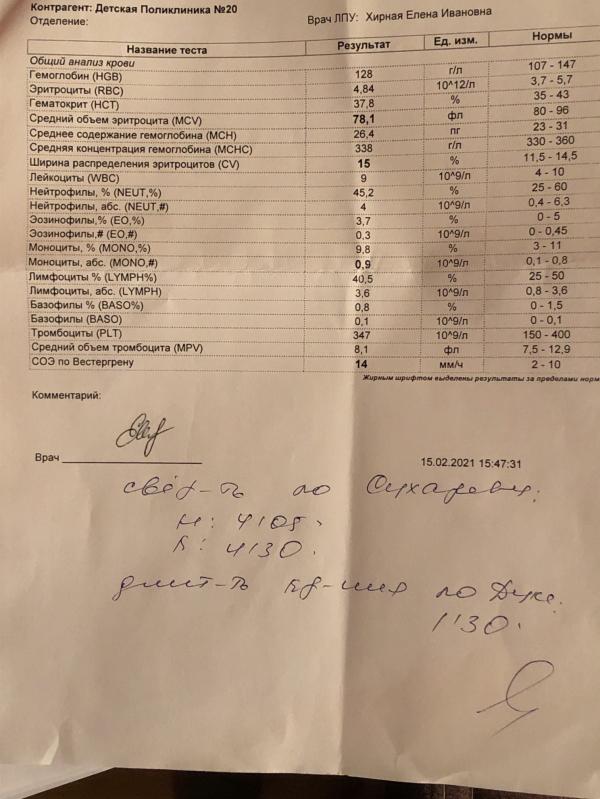 Контрагент: Детская Поликлиника №20
Отделение: Врач ЛПУ: Хирная Елена Ивановна
Название теста Результат Ед. изм. Нормы
Общий анализ крови
Гемоглобин (HGB) 128 г/л 107 - 147
Эритроциты (RBC) 4,84 10^12/л 3,7 - 5,7
Гематокрит (HCT) 37,8 % 35 - 43
Средний объем эритроцита (MCV) 78,1 фл 80 - 96
Среднее содержание гемоглобина (MCH) 26,4 пг 23 - 31
Средняя концентрация гемоглобина (MCHC) 338 г/л 330 - 360
Ширина распределения эритроцитов (CV) 15 % 11,5 - 14,5
Лейкоциты (WBC) 9 10^9/л 4 - 10
Нейтрофилы, % (NEUT,%) 45,2 % 25 - 60
Нейтрофилы, абс. (NEUT,#) 4 10^9/л 0,4 - 6,3
Эозинофилы,% (EO,%) 3,7 % 0 - 5
Эозинофилы,# (EO,#) 0,3 10^9/л 0 - 0,45
Моноциты, % (MONO,%) 9,8 % 3 - 11
Моноциты, абс. (MONO,#) 0,9 10^9/л 0,1 - 0,8
Лимфоциты % (LYMPH%) 40,5 % 25 - 50
Лимфоциты, абс. (LYMPH) 3,6 10^9/л 0,8 - 3,6
Базофилы % (BASO%) 0,8 % 0 - 1,5
Базофилы (BASO) 0,1 10^9/л 0 - 0,1
Тромбоциты (PLT) 347 10^9/л 150 - 400
Средний объем тромбоцита (MPV) 8,1 фл 7,5 - 12,9
СОЭ по Вестергрену 14 мм/ч 2 - 10
Жирным шрифтом выделены результаты за пределами норм
Комментарий:
Врач 15.02.2021 15:47:31
свёр-ть по Сухареву:
Н: 4'05
К: 4'30
длит-ть по Дуке:
1'30